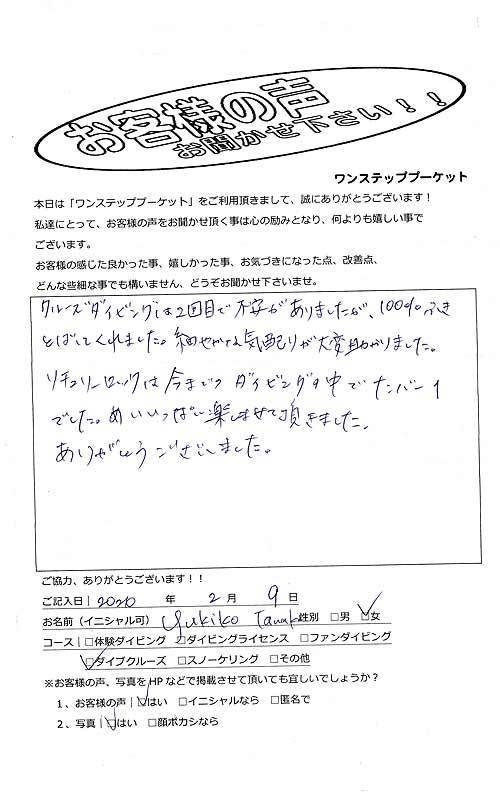 お客様の声
お聞かせ下さい！！
ワンステッププーケット
本日は「ワンステッププーケット」をご利用頂きまして、誠にありがとうございます！
私達にとって、お客様の声をお聞かせ頂く事は心の励みとなり、何よりも嬉しい事で
ございます。
お客様の感じた良かった事、嬉しかった事、お気づきになった点、改善点、
どんな些細な事でも構いません、どうぞお聞かせ下さいませ。
クルーズダイビングは2回目で不安がありましたが、100%ふき
とばしてくれました。細やかな気配りが大変助かりました。
リチェリーロックは今までのダイビングの中でナンバー1
でした。めいいっぱい楽しませて頂きました。
ありがとうございました。
ご協力、ありがとうございます！！
ご記入日｜2020 年 2 月 9 日
お名前（イニシャル可） Yukiko Tanak 性別 □男 □女
コース｜□体験ダイビング □ダイビングライセンス □ファンダイビング
□ダイブクルーズ □スノーケリング □その他
※お客様の声、写真をHPなどで掲載させて頂いても宜しいでしょうか？
1、お客様の声｜□はい □イニシャルなら □匿名で
2、写真｜□はい □顔ボカシなら